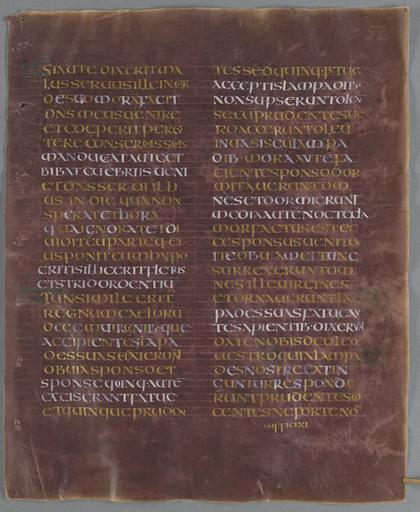 52
SIAUTEDIXERITMA
LUSSERUUSILLEINCOR
DESUOMORAFACIT
DNSMEUSUENIRE
ETCOEPERITPERCU
TERECONSERUOSSUOS
MANDUCATAUTEET
BIBATCUEBRIISUENI
ETDNSSERUIILLI
USINDIEQUANON
SPERATETHORA
QUAIGNORATETDI
UIDITEUMPARTEQ·EI
USPONITCUMHYPO
CRITISILLICERITFLETUS
ETSTRIDORDENTIU
TUNSIMILEERIT
REGNUMCAELORU
DECEMUIRGINIB·QUE
ACCIPIENTESLAPA
DESSUASEXIERUNT
OBUIASPONSOET
SPONSEQUINQ·AUTE
EXEISERANTFATUE
ETQUINQUEPRUDEN
TESSEDQUINQ·FATUE
ACCEPTISLAMPADIB·
NONSUPSERUNTOLEU
SECUPRUDENTESUE
ROACCERUNTOLEU
INUASISCULAMPA
DIB·MORAAUTEFA
CIENTESPONSODOR
MITAUERUNTOM
NESETDORMIERUNT
MEDIAAUTENOCTECLA
MORFACTUSESTEC
CESPONSUSUENITEX
ITEOBUIAMEITUNC
SURREXERUNTOM
NESILLEUIRGINES
ETORNAUERUNTLA
PADESSUASFATUEAU
TESAPIENTIB·DIXERUN
DATENOBISDEOLEO
UESTROQUIALAMPA
DESNOSTREEXTIN
GUNTURRESPONDE
RUNTPRUDENTESDI
CENTESNEFORTENO
SUFFICIAT